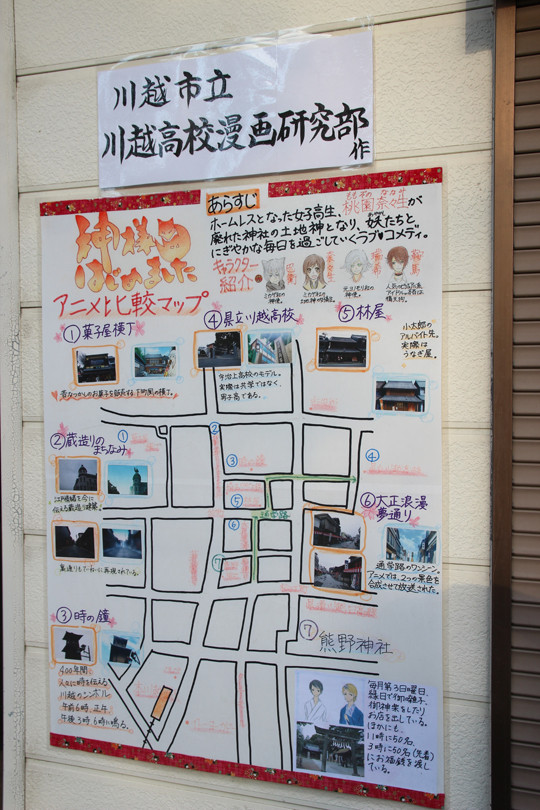 川越市立
川越高校漫画研究部
作
神様
はじめました
アニメ比較マップ
あらすじ
ホームレスとなった女子高生、桃園奈々生が
廃れた神社の土地神となり、妖たちと
にぎやかな毎日を過ごしていくラブ♥コメディ。
キャラクター
紹介
ミカゲ社の
神使。
ミカゲ社の
神使。
①菓子屋横丁
昔なつかしのお菓子を販売する下町風の横丁。
④県立川越高校
宇治上高校のモデル。
実際は共学ではなく、
男子高である。
⑤林屋
小太郎の
アルバイト先。
実際は
うなぎ屋。
②蔵造りの
まちなみ
伝える蔵造り建築。
③時の鐘
400年間
人々に時を伝える
川越のシンボル
午前6時、正午
午後3時、6時に鳴る。
①
②
③
④
⑤
⑥
⑦
通学路
⑥大正浪漫
夢通り
通学路のワンシーン。
アニメでは、2つの景色を
合成させて放送された。
⑦熊野神社
毎月第3日曜日、
縁日で御囃子、
御神楽をしたり
お店を出している。
ほかにも、
11時に50名、
3時に50名(先着)
にお福銭を渡し
ている。